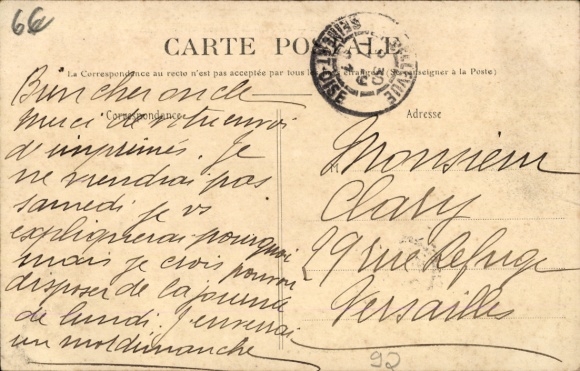 66
CARTE POSTALE
La Correspondance au recto n'est pas acceptée par tous les pays étrangers (Se renseigner à la Poste)
Correspondance
Adresse
BELLEVUE
SEINE-ET-OISE
Bien cher oncle
Merci de votre envoi
d'imprimés. Je
ne viendrai pas
samedi je vs
expliquerai pourquoi
mais je crois pouvoir
disposer de la journée
de lundi. J'enverrai
un mot dimanche
Monsieur
Clary
29 rue Refuge
Versailles
92